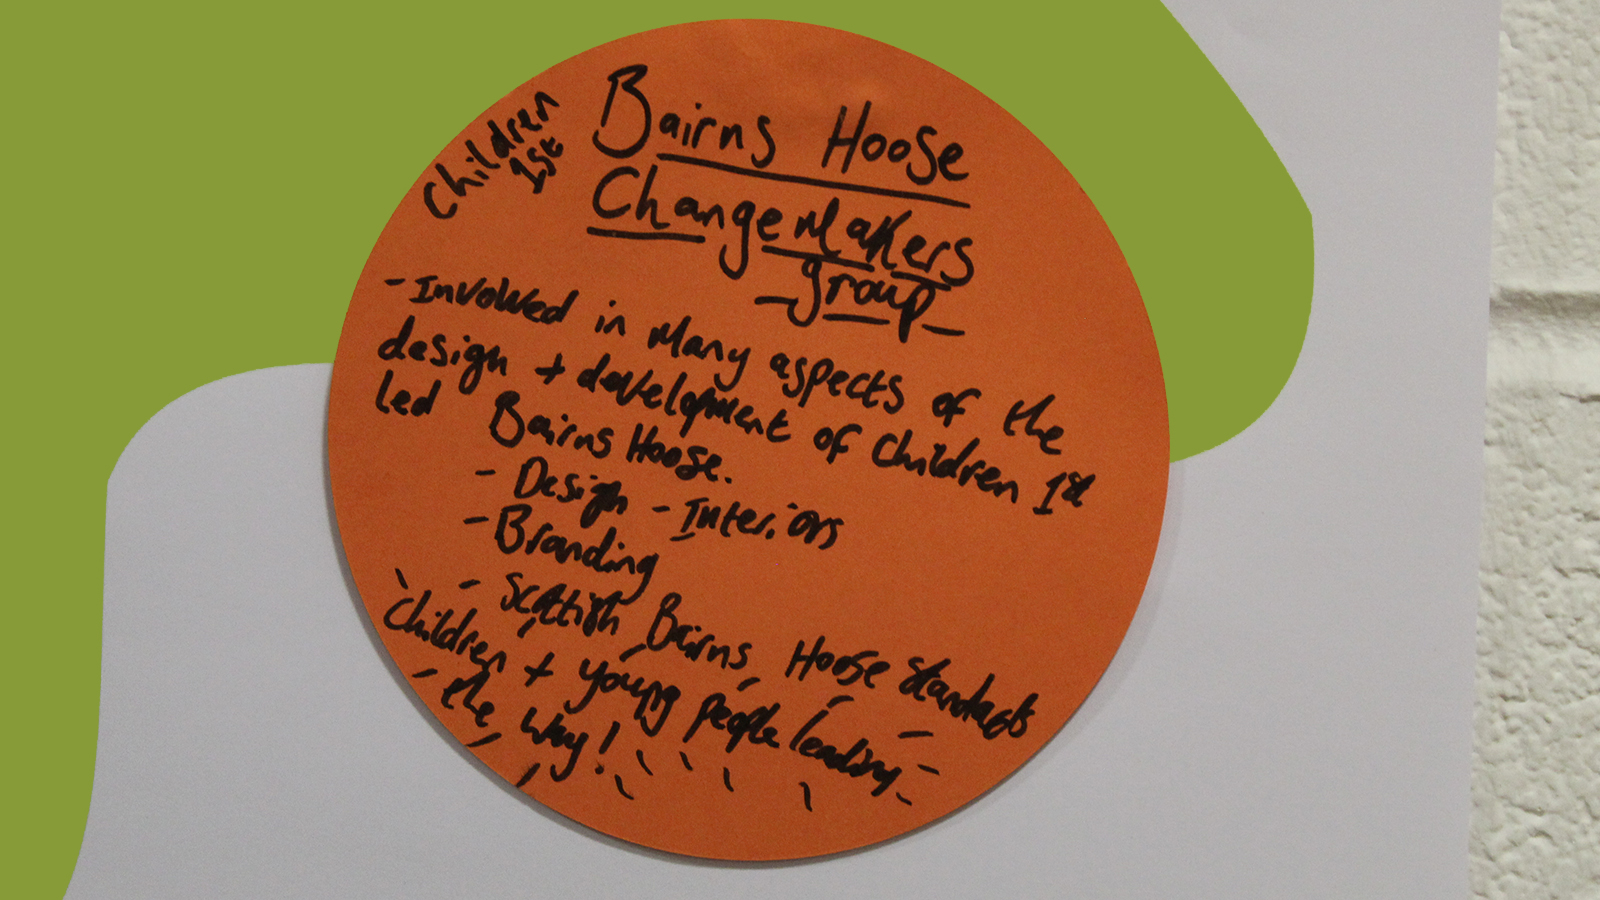 Children
1st
Bairns Hoose
Changemakers
-group-
- Involved in many aspects of the
design + development of Children 1st
led Bairns Hoose.
- Design - Interiors
- Branding
- Scottish Bairns Hoose Standards
Children + young people leading
the way!